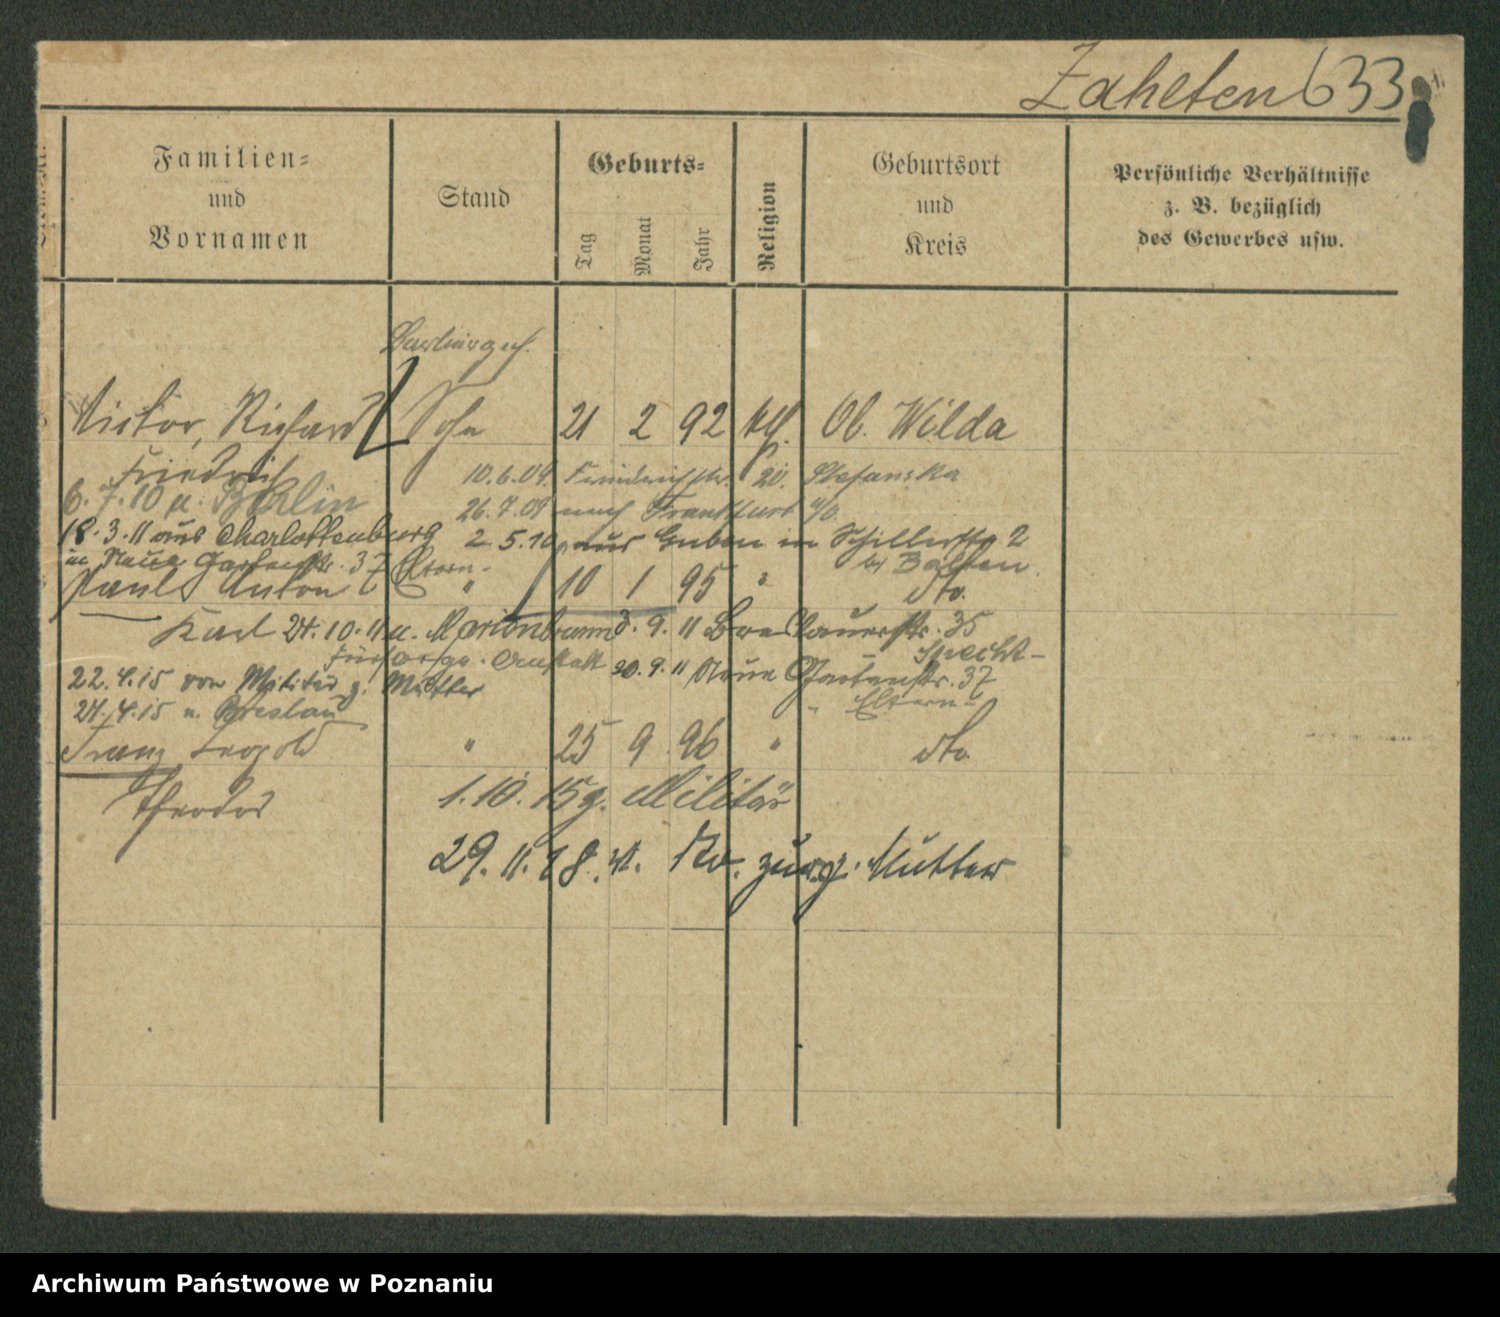 Zahlten 633
Familien=
und
Vornamen
Stand
Geburts=
Tag
Monat
Jahr
Religion
Geburtsort
und
Kreis
Persönliche Verhältnisse
z. B. bezüglich
des Gewerbes usw.
Victor, Richard Sohn 21 2 92 kth. Ob. Wilda
Friedrich 10.6.09. Friedrichstr. 20. Stefanska
6.7.10 n. Berlin 26.7.09 nach Frankfurt a/O
18.3.11 aus Charlottenburg 2.5.10 aus Guben in Schillerstr 2
in Neue Gartenstr. 37 Eltern. bei
Paul Anton " 10 1 95 " dto.
Karl 24.10.11 n. Marienbrunn 9. 11 Breslauerstr. 35
Fürsorge-Anstalt 30.9.11 Neue Gartenstr. 37
22.4.15 von Militär z. Mutter
24.4.15 n. Breslau " Eltern
Franz Leopold " 25 9 96 " dto
Theodor 1.10.15 z. Militär
29.11.18. v. zur z. Mutter
Archiwum Państwowe w Poznaniu